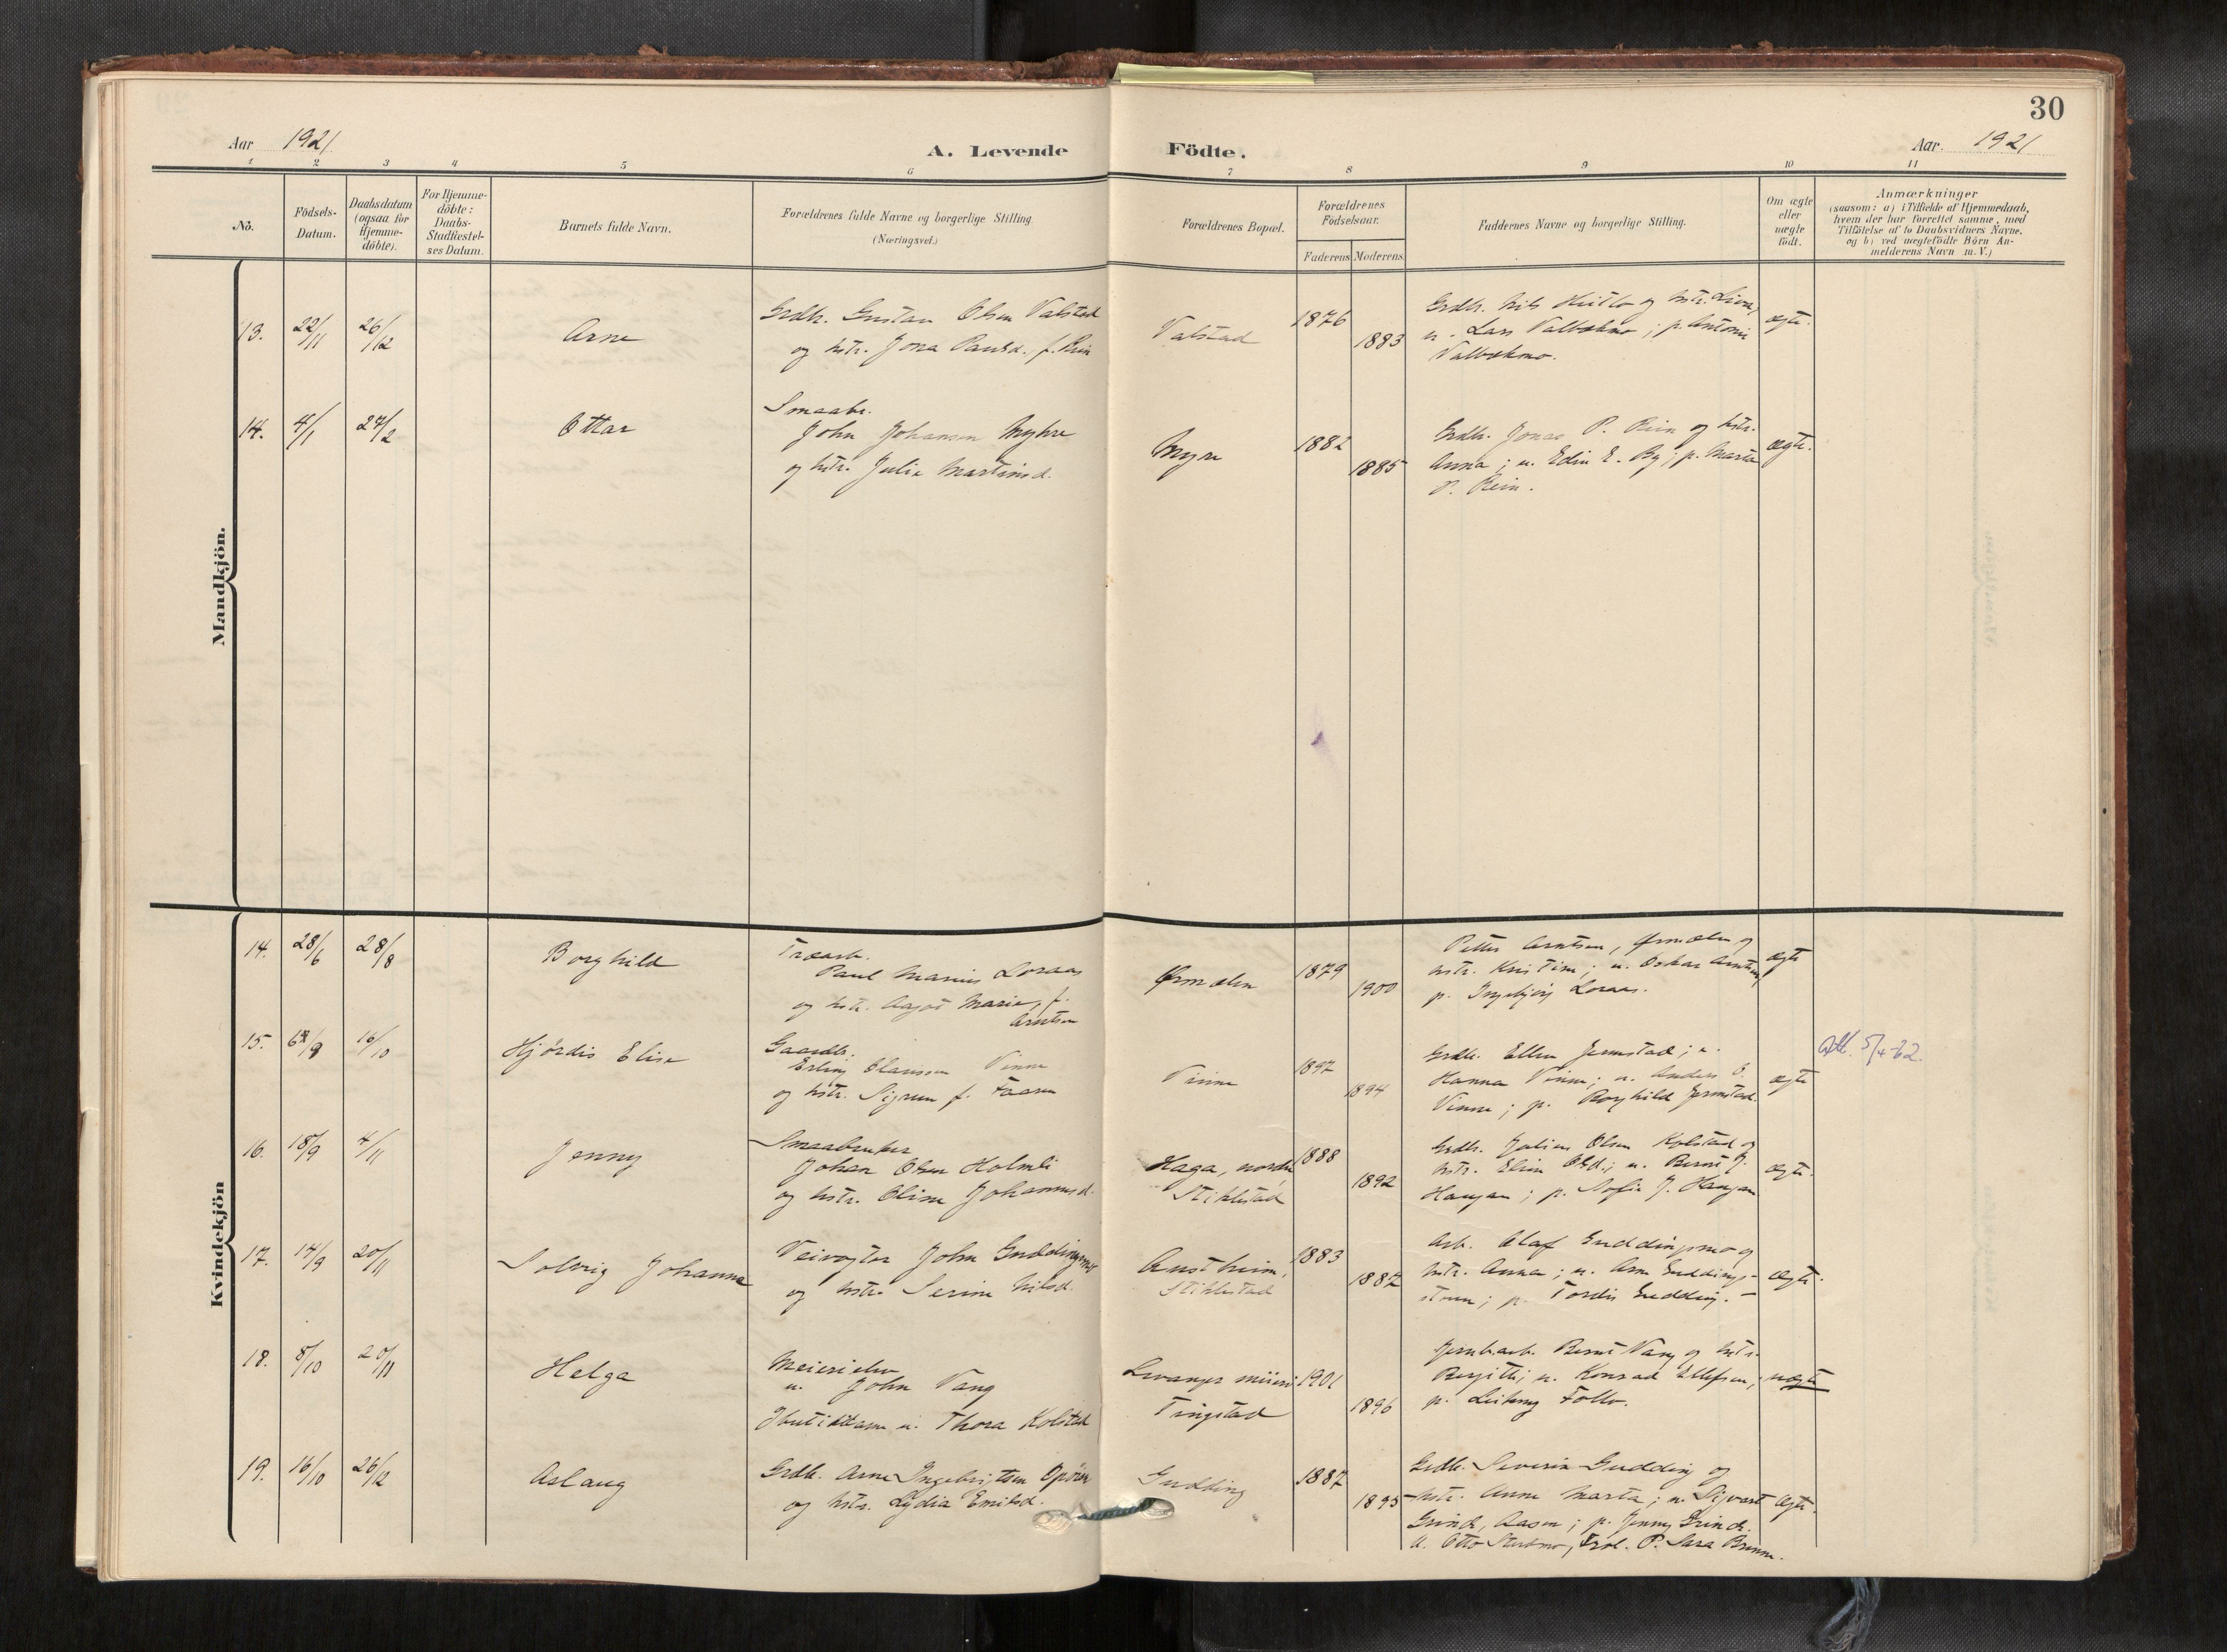 30
Aar 1921
A. Levende Födte.
Aar. 1921
1 2 3 4 5 6 7 8 9 10 11
No.
Födsels-
Datum.
Daabsdatum
(ogsaa for
Hjemme-
döbte).
For Hjemme-
döbte:
Daabs-
Stadfæstel-
ses Datum.
Barnets fulde Navn.
Forældrenes fulde Navne og borgerlige Stilling.
(Næringsvei.)
Forældrenes Bopæl.
Forældrenes
Födselsaar.
Faderens Moderens
Faddernes Navne og borgerlige Stilling.
Om ægte
eller
uægte
födt.
Anmærkninger
(saasom: a) i Tilfælde af Hjemmedaab,
hvem der har forrettet samme, med
Tilföielse af to Daabsvidners Navne.
og b) ved uægtefödte Börn An-
melderens Navn m.V.)
Mandkjön.
13. 22/11 26/12
Arne
Grdb. Gustav Olsen Valstad
og hstr. Jona Paulsd. f. Rein
Valstad
1876
1883
Grdb. Nils og hstr.
u. Lars Valbekmo; p. Antoni
Valbekmo.
ægte.
14. 4/1 27/2
Ottar
Smaabr.
John Johansen Myhre
og hstr. Julie Martinsd.
Myre
1882
1885
Grdb. Jonas P. Rein og hstr.
Anna; u. Edin E. By; p. Marta
P. Rein.
ægte.
Kvindekjön
14. 28/6 28/8
Borghild
Træarb.
Paul Marius Loraas
og hstr. Aagot Marie, f.
Arntsen
Ørmelen
1879
1900
Petter Arntsen, Ørmelen og
hstr. Kristine; u. Oskar Arntsen
p. Ingebjörg Loraas.
ægte
15. /9 16/10
Hjördis Elise
Gaardb.
Erling Olaussen Vinne
og hstr. Sigrun f. Faaren
Vinne
1897
1894
Grdb. Ellen Jermstad; u.
Hanna Vinne; u. Anders O.
Vinne; p. Borghild Jermstad.
ægte
Att. 5/4-62.
16. 18/9 4/11
Jenny
Smaabruker
Johan Olsen Holmli
og hstr. Oline Johannesd.
Haga, nordre
Stiklestad
1888
1892
Grdb. Julius Olsen Kolstad og
hstr. Eline Olsd.; u. Bernt J.
Haugan; p. Sofie J. Haugan
ægte.
17. 14/9 20/11
Solveig Johanna
Veivogter John Guddingsmo
og hstr. Serine Nilsd.
Austheim,
Stiklestad
1883
1887
Arb. Olaf Guddingsmo og
hstr. Anna; u. Arne Guddings-
; p. Tordis Gudding. -
ægte.
18. 8/10 20/11
Helga
Meierielev
u. John Vang
u. Thora Kolstad
Levanger meieri
Tingstad
1901
1896
Jernbarb. Bernt Vang og hstr.
Bergitte; u. Konrad Ellefsen;
p. Follo.
uægte
19. 16/10 26/12
Aslaug
Grdb. Arne Ingebrigtsen
og hstr. Lydia Emilsd.
Gudding
1887
1895
Grdb. Severin Gudding og
hstr. Anne Marta; u. Sigvart
Grinde, Aasen; p. Jenny Grinde.
u. Otto . P. Sara .
ægte.